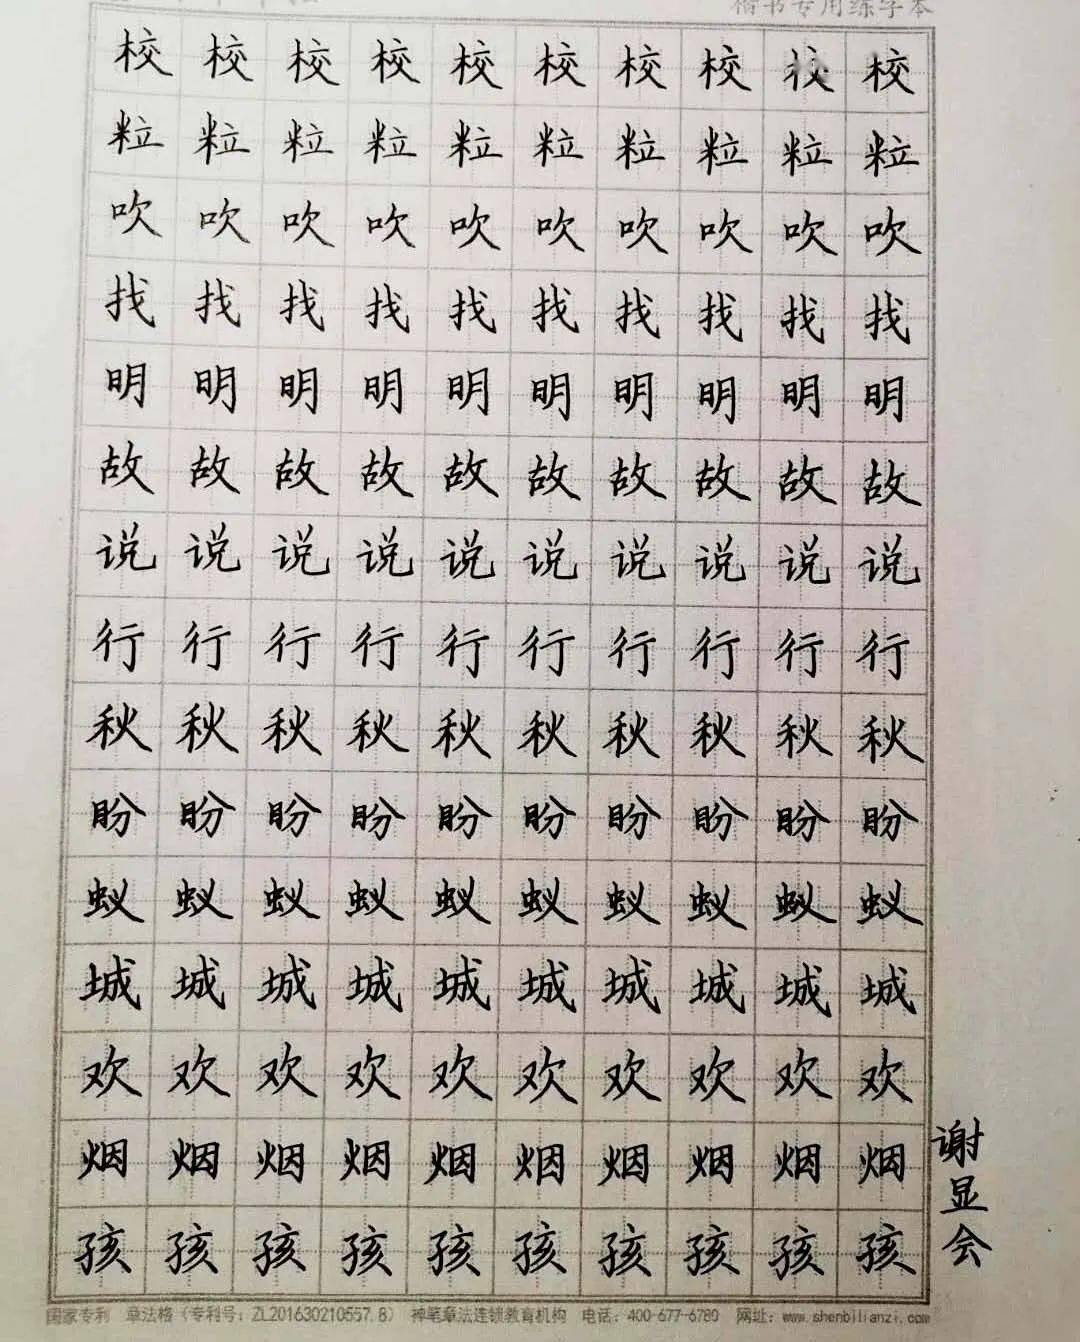 楷书专用练字本
校校校校校校校校校校
粒粒粒粒粒粒粒粒粒粒
吹吹吹吹吹吹吹吹吹吹
找找找找找找找找找找
明明明明明明明明明明
故故故故故故故故故故
说说说说说说说说说说
行行行行行行行行行行
秋秋秋秋秋秋秋秋秋秋
盼盼盼盼盼盼盼盼盼盼
蚁蚁蚁蚁蚁蚁蚁蚁蚁蚁
城城城城城城城城城城
欢欢欢欢欢欢欢欢欢欢
烟烟烟烟烟烟烟烟烟烟
孩孩孩孩孩孩孩孩孩孩
谢显会
国家专利 章法格（专利号：ZL201630210557.8） 神笔章法连锁教育机构 电话：400-677-6780 网址：www.shenbilianzi.com